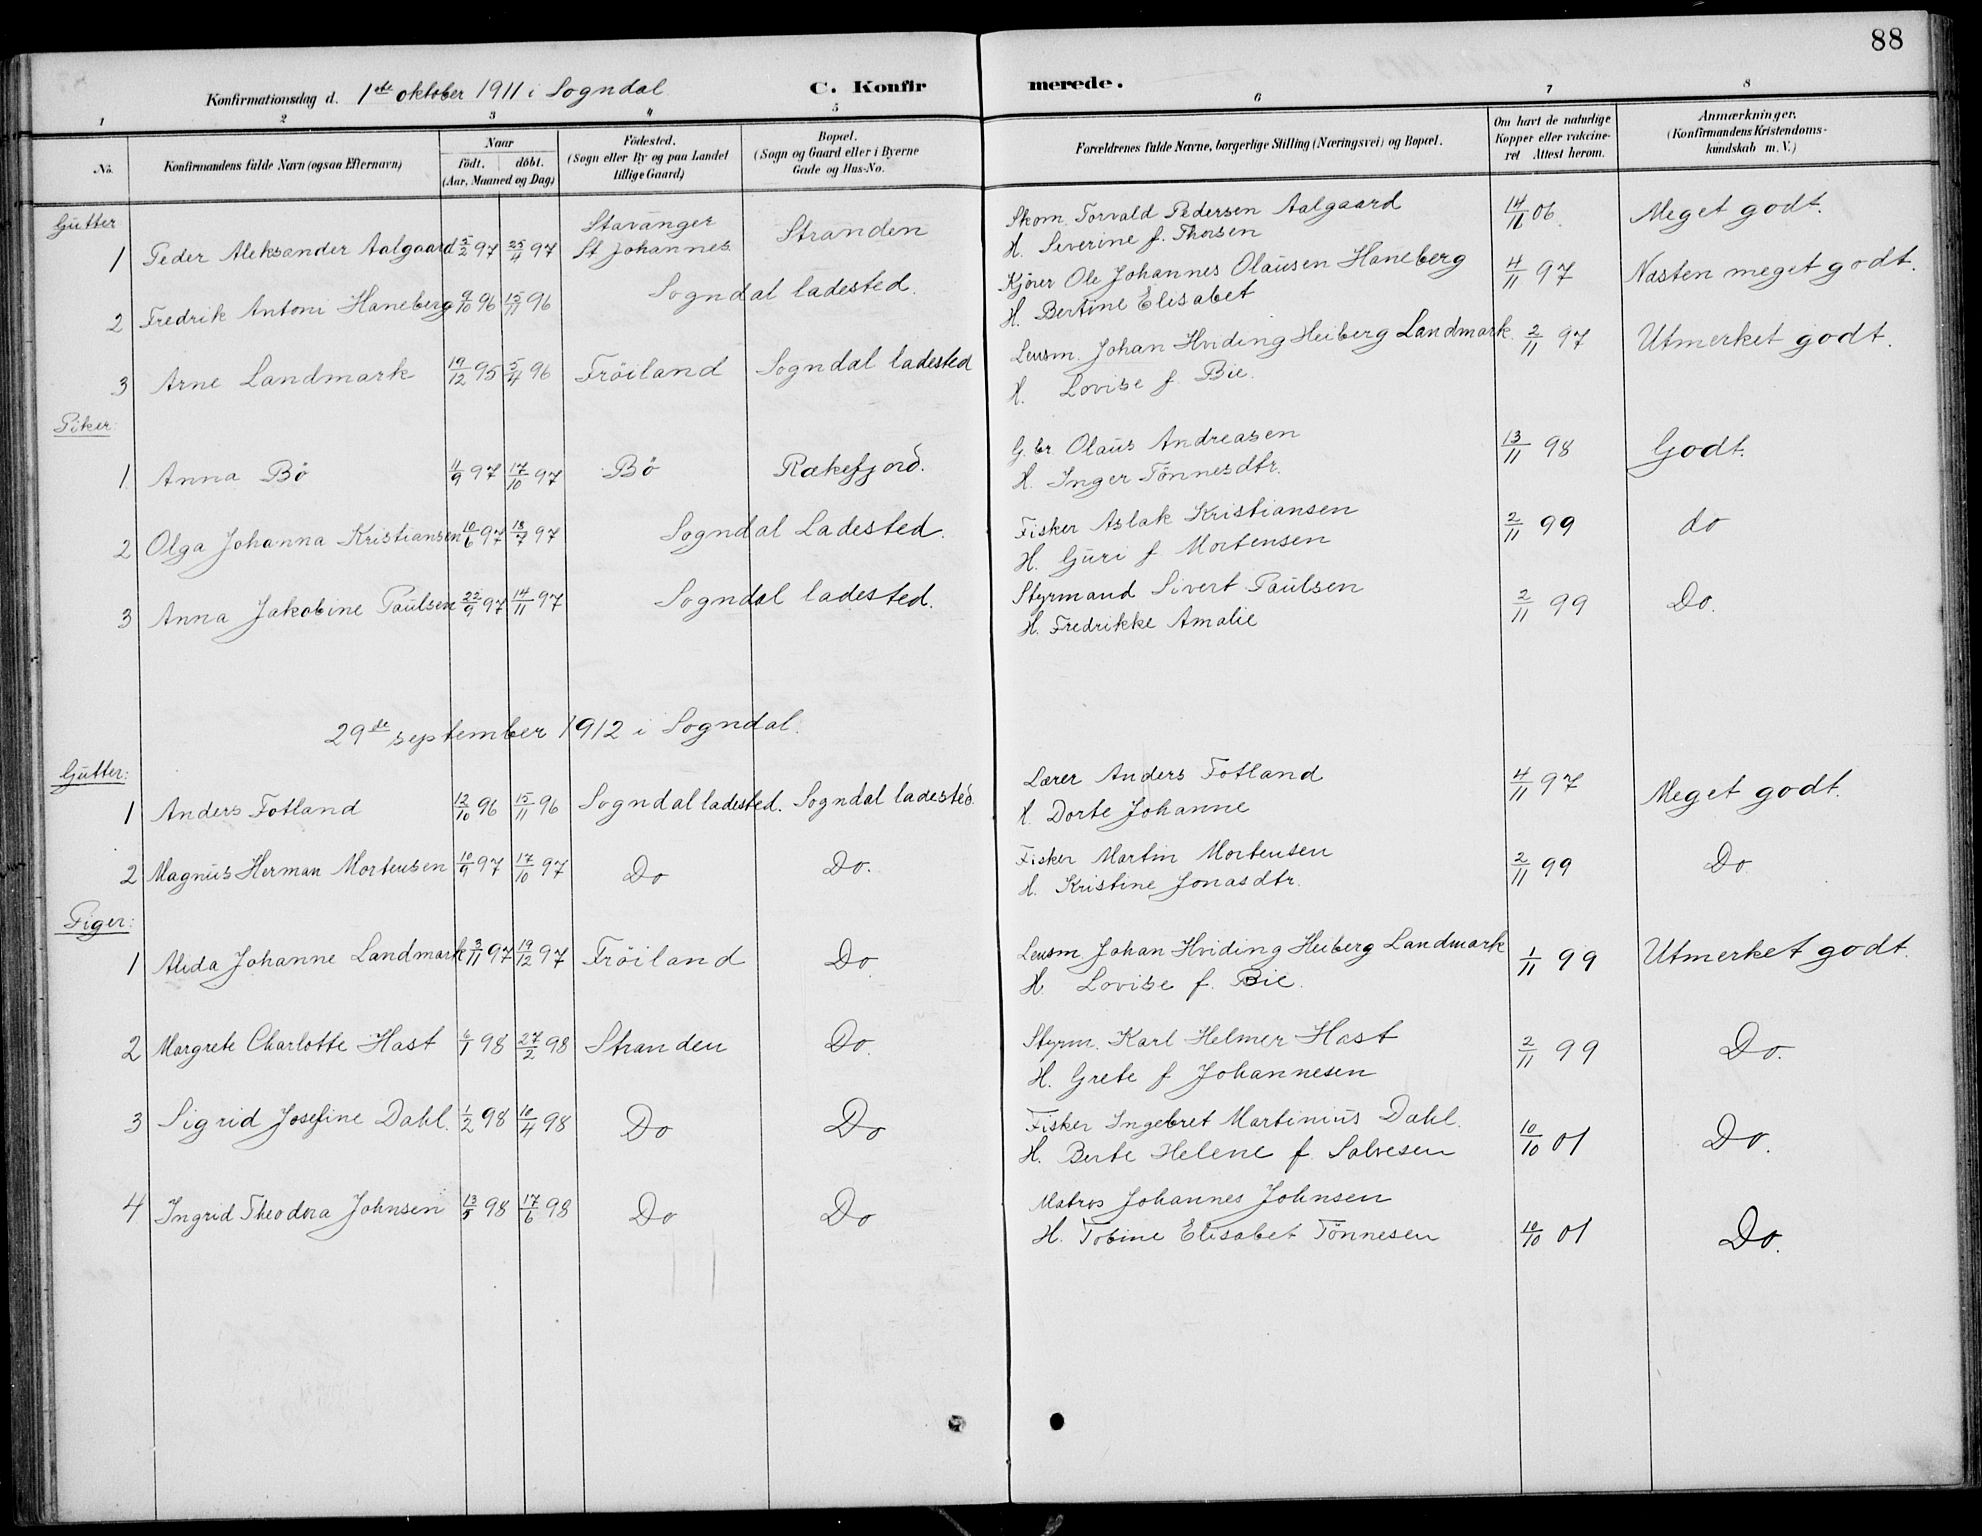 88
Konfirmationsdag d. 1ste oktober 1911 i Sogndal C. Konfirmerede.
1 2 3 4 5 6 7 8
No. Konfirmandens fulde Navn (ogsaa Efternavn) Naar født. døbt. (Aar, Maaned og Dag) Fødested. (Sogn eller By og paa Landet tillige Gaard) Bopæl. (Sogn og Gaard eller i Byerne Gade og Hus-No. Forældrenes fulde Navne, borgerlige Stilling (Næringsvei) og Bopæl. Om havt de naturlige Kopper eller vakcineret Attest herom. Anmærkninger. (Konfirmandens Kristendomskundskab m. V.)
Gutter
1 Peder Aleksander Aalgaard 5/2 97 25/4 97 Stavanger St Johannes. Stranden Skom. Torvald Pedersen Aalgaard 14/11 06. Meget godt.
H. Severine f. Thorsen
2 Fredrik Antoni Haneberg 9/10 96 15/11 96 Sogndal ladested. Kjører Ole Johannes Olausen Haneberg 4/11 97 Næsten meget godt.
H. Bertine Elisabet
3 Arne Landmark 19/12 95 5/4 96 Frøiland Sogndal ladested Lensm. Johan Hviding Heiberg Landmark. 2/11 97 Utmerket godt.
H. Lovise f. Bie.
Piker:
1. Anna Bø 11/9 97 17/10 97 Bø Rækefjord. G. br. Olaus Andreasen 13/11 98 Godt.
H. Inger Tønnesdtr.
2 Olga Johanna Kristiansen 10/6 97 18/7 97 Sogndal Ladested. Fisker Aslak Kristiansen 2/11 99 do
H. Guri f Mortensen
3 Anna Jakobine Paulsen 22/9 97 14/11 97 Sogndal ladested. Styrmand Sivert Paulsen 2/11 99 Do.
H. Fredrikke Amalie
29de september 1912 i Sogndal.
Gutter:
1 Anders Fotland 12/10 96 15/11 96 Sogndal ladested. Sogndal ladested. Lærer Anders Fotland 4/11 97 Meget godt.
H. Dorte Johanne
2 Magnus Herman Mortensen 10/9 97 17/10 97 Do Do. Fisker Martin Mortensen 2/11 99 Do.
H. Kristine Jonasdtr.
Piger:
1 Alida Johanne Landmark 3/11 97 19/12 97 Frøiland Do. Lensm. Johan Hviding Heiberg Landmark 1/11 99 Utmerket godt.
H. Lovise f. Bie.
2 Margrete Charlotte Hast 6/1 98 27/2 98 Stranden Do. Styrm. Karl Helmer Hast 2/11 99 Do.
H. Grete f Johannesen
3 Sigrid Josefine Dahl. 1/2 98 10/4 98 Do Do Fisker Ingebret Martinius Dahl. 10/10 01 Do.
H. Berte Helene f. Salvesen
4 Ingrid Theodora Johnsen 13/5 98 17/6 98 Do Do Matros Johannes Johnsen 10/10 01 Do.
H. Tobine Elisabet Tønnesen